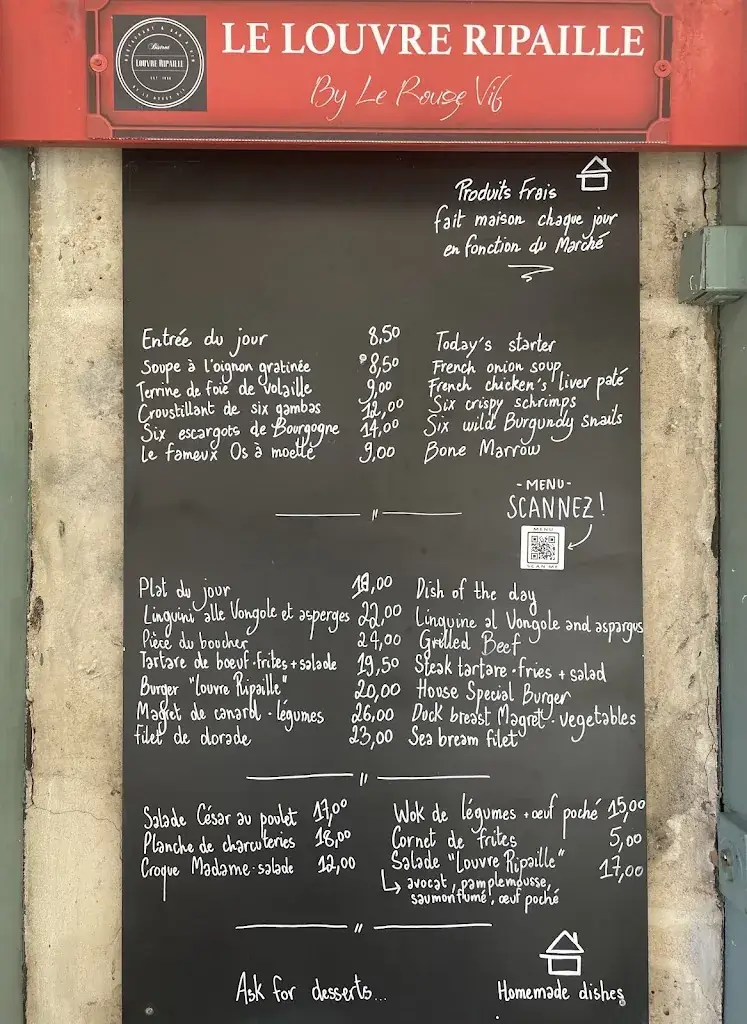 LE LOUVRE RIPAILLE
By Le Rouge Vif
RESTAURANT & BAR À VIN
Bistrot
LOUVRE RIPAILLE
BY LE ROUGE VIF
Produits Frais
fait maison chaque jour
en fonction du Marché
Entrée du jour 8,50 Today's starter
Soupe à l'oignon gratinée 8,50 French onion soup
Terrine de foie de volaille 9,00 French chicken's liver paté
Croustillant de six gambas 12,00 Six crispy schrimps
Six escargots de Bourgogne 14,00 Six wild Burgundy snails
Le fameux Os à moelle 9,00 Bone Marrow
-MENU-
SCANNEZ!
MENU
SCAN ME
Plat du jour Dish of the day
Linguini alle Vongole et asperges 22,00 Linguine al Vongole and aspargus
Pièce du boucher 24,00 Grilled Beef
Tartare de boeuf·frites+salade 19,50 Steak tartare·fries + salad
Burger "Louvre Ripaille" 20,00 House Special Burger
Magret de canard - légumes 26,00 Duck breast Magret - vegetables
filet de dorade 23,00 Sea bream filet
Salade César au poulet 17,00 Wok de légumes + œuf poché 15,00
Planche de charcuteries 18,00 Cornet de frites 5,00
Croque Madame-salade 12,00 Salade "Louvre Ripaille" 17,00
avocat, pamplemousse,
saumon fumé, œuf poché
Ask for desserts...
Homemade dishes